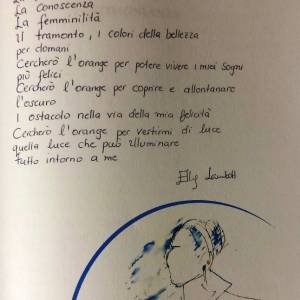 La Conoscenza
La femminilità
Il tramonto, i colori della bellezza
per domani
Cercherò l'orange per potere vivere i miei Sogni
più felici
Cercherò l'orange per coprire e allontanare
l'oscuro
l ostacolo nella via della mia felicità
Cercherò l'orange per vestirmi di luce
quella luce che può illuminare
tutto intorno a me
Elly